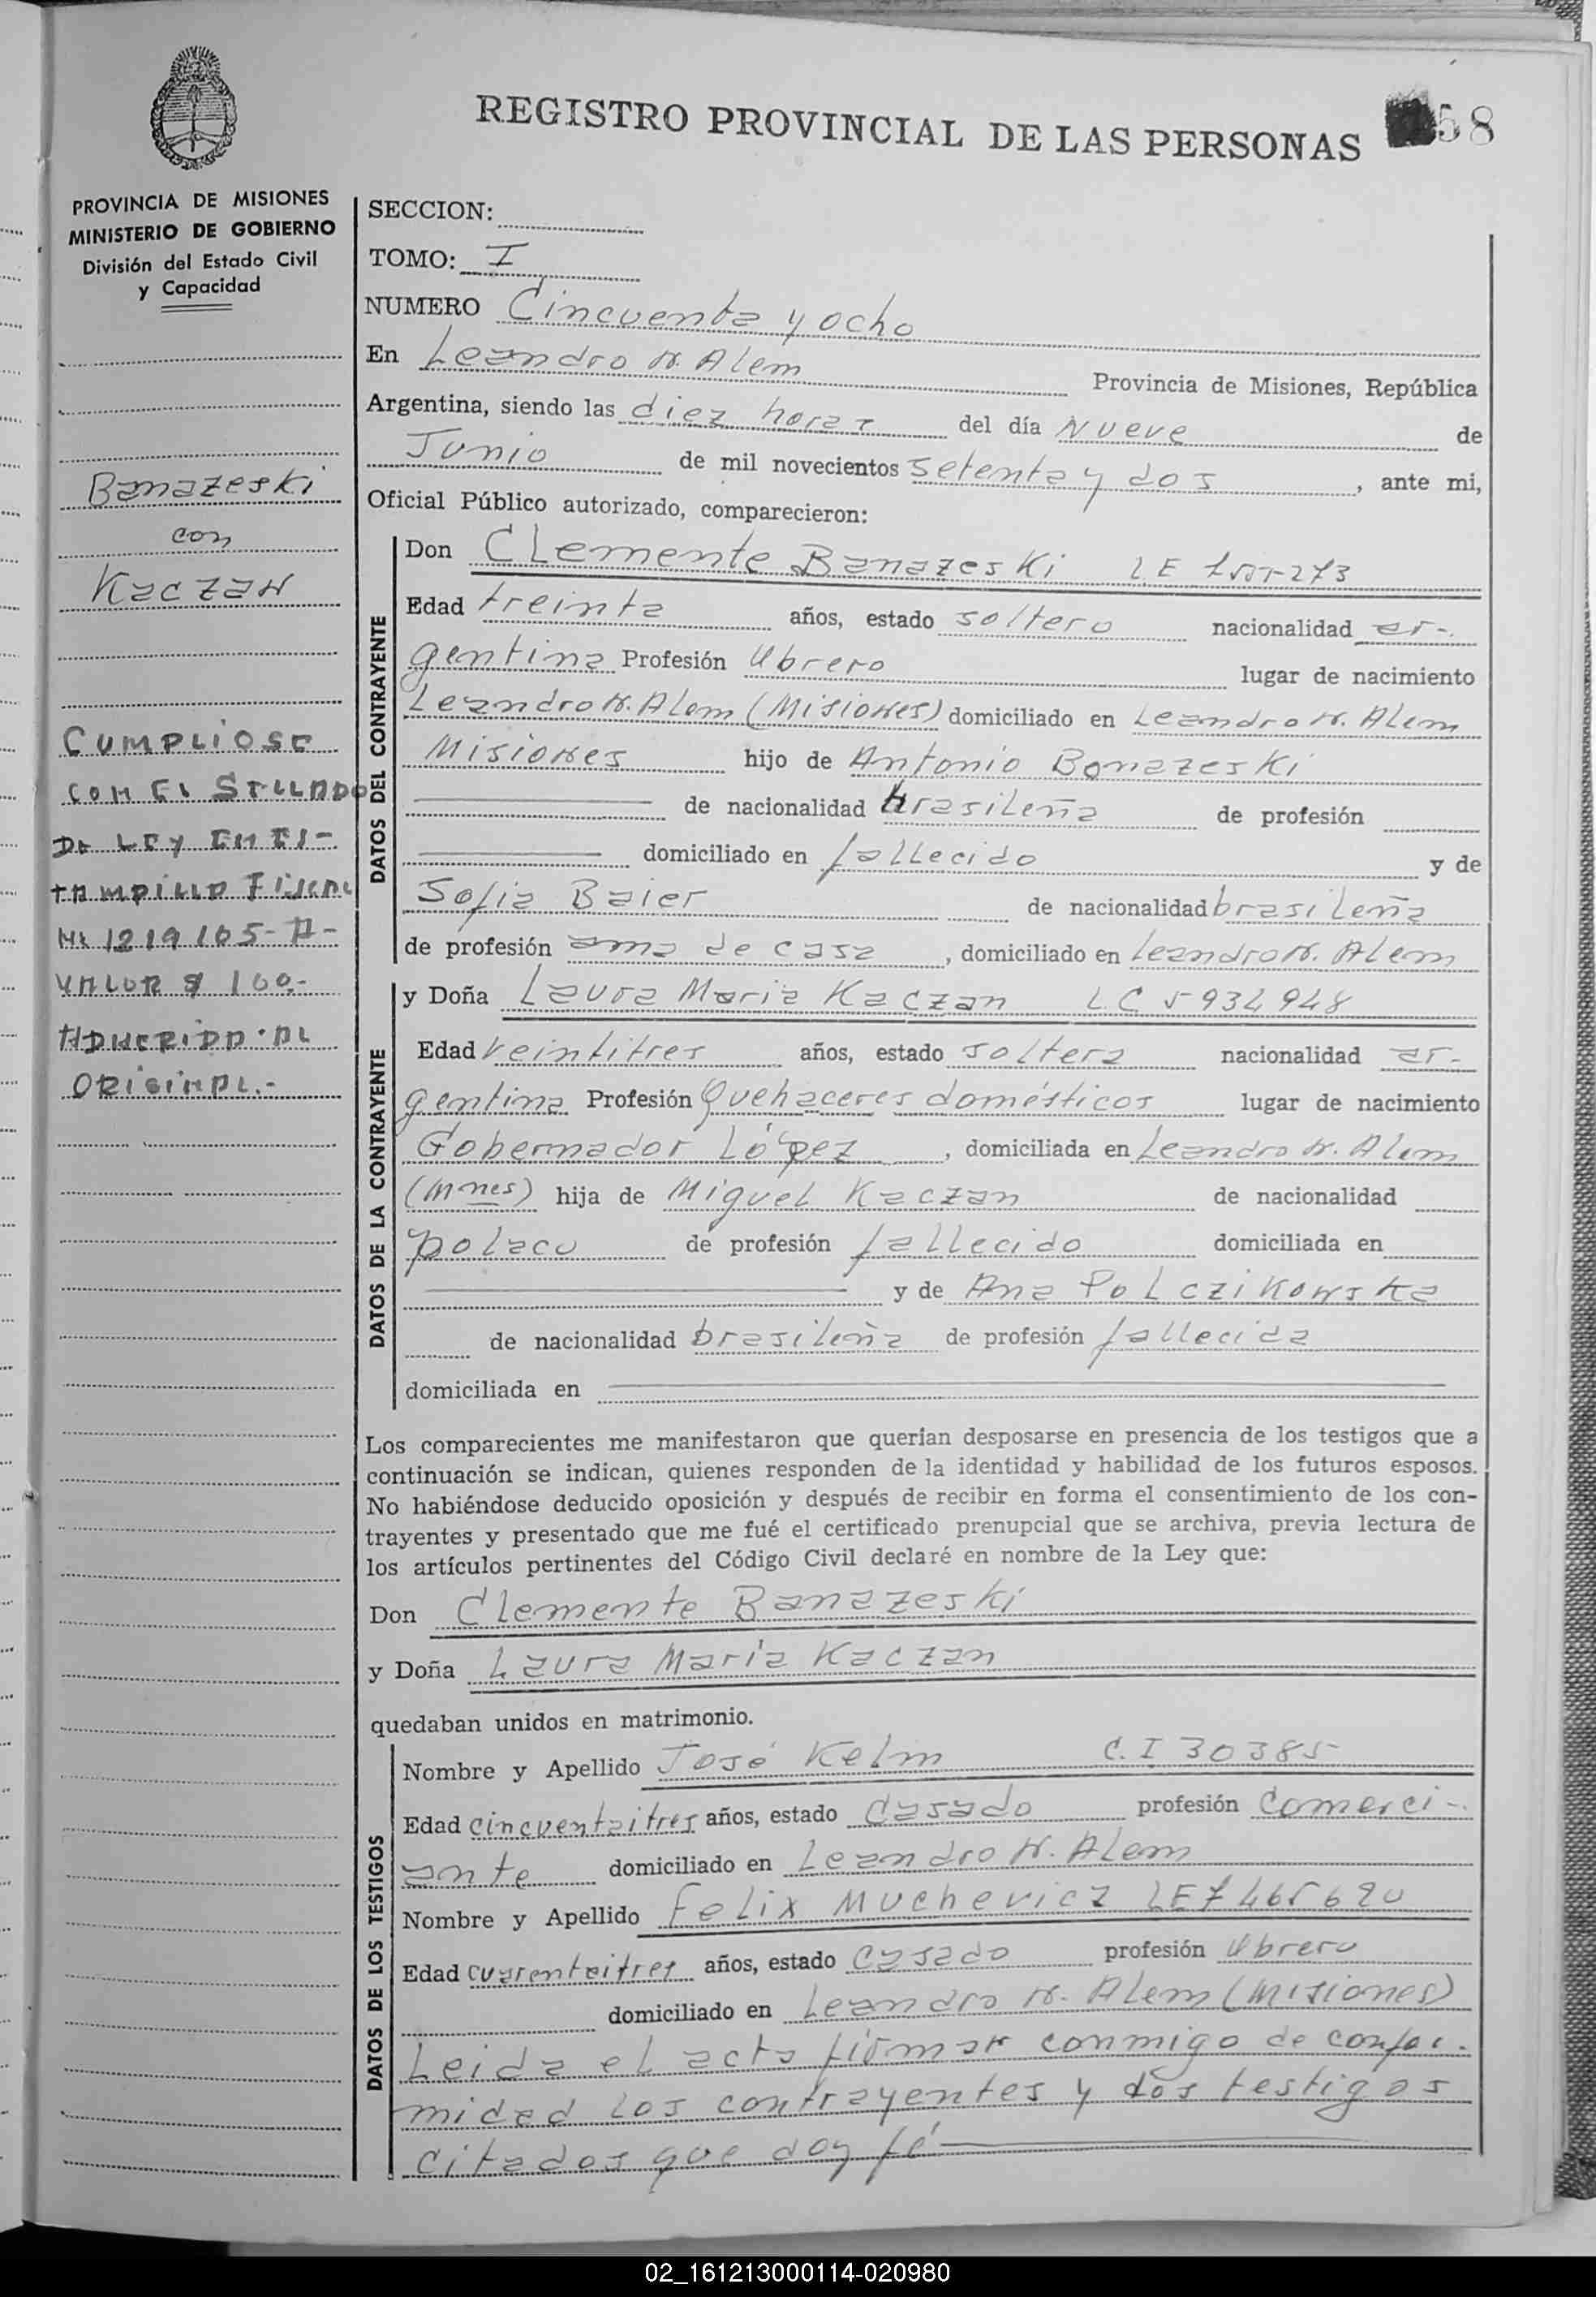 REGISTRO PROVINCIAL DE LAS PERSONAS 58
PROVINCIA DE MISIONES
MINISTERIO DE GOBIERNO
División del Estado Civil
y Capacidad
Banazeski
con
Kaczan
CUMPLIOSE
CON EL SELLADO
DE LEY EN ES-
TAMPILLA FISCAL
Nº 1219105-A-
VALOR $ 100.-
ADHERIDA AL
ORIGINAL.-
SECCION:
TOMO: I
NUMERO Cincuenta y ocho
En Leandro N. Alem Provincia de Misiones, República
Argentina, siendo las diez horas del día Nueve de
Junio de mil novecientos setenta y dos, ante mi,
Oficial Público autorizado, comparecieron:
DATOS DEL CONTRAYENTE
Don Clemente Banazeski LE
Edad treinta años, estado soltero nacionalidad ar-
gentina Profesión Obrero lugar de nacimiento
Leandro N. Alem (Misiones) domiciliado en Leandro N. Alem
Misiones hijo de Antonio Bonazeski
de nacionalidad brasileña de profesión
domiciliado en fallecido y de
Sofia Baier de nacionalidad brasileña
de profesión ama de casa, domiciliado en Leandro N. Alem
DATOS DE LA CONTRAYENTE
y Doña Laura Maria Kaczan LC 5934948
Edad veintitres años, estado soltera nacionalidad ar-
gentina Profesión Quehaceres domésticos lugar de nacimiento
Gobernador López, domiciliada en Leandro N. Alem
(Mnes) hija de Miguel Kaczan de nacionalidad
polaco de profesión fallecido domiciliada en
y de Ana Polczikowska
de nacionalidad brasileña de profesión fallecida
domiciliada en
Los comparecientes me manifestaron que querían desposarse en presencia de los testigos que a
continuación se indican, quienes responden de la identidad y habilidad de los futuros esposos.
No habiéndose deducido oposición y después de recibir en forma el consentimiento de los con-
trayentes y presentado que me fué el certificado prenupcial que se archiva, previa lectura de
los artículos pertinentes del Código Civil declaré en nombre de la Ley que:
Don Clemente Banazeski
y Doña Laura Maria Kaczan
quedaban unidos en matrimonio.
DATOS DE LOS TESTIGOS
Nombre y Apellido José Kelm C.I 30385
Edad cincuentaitres años, estado Casado profesión Comerci-
ante domiciliado en Leandro N. Alem
Nombre y Apellido Felix Muchevicz LE 7465620
Edad cuarentaitres años, estado Casado profesión Obrero
domiciliado en Leandro N. Alem (Misiones)
Leida el acta firman conmigo de confor-
midad los contrayentes y dos testigos
citados que doy fé
02_161213000114-020980